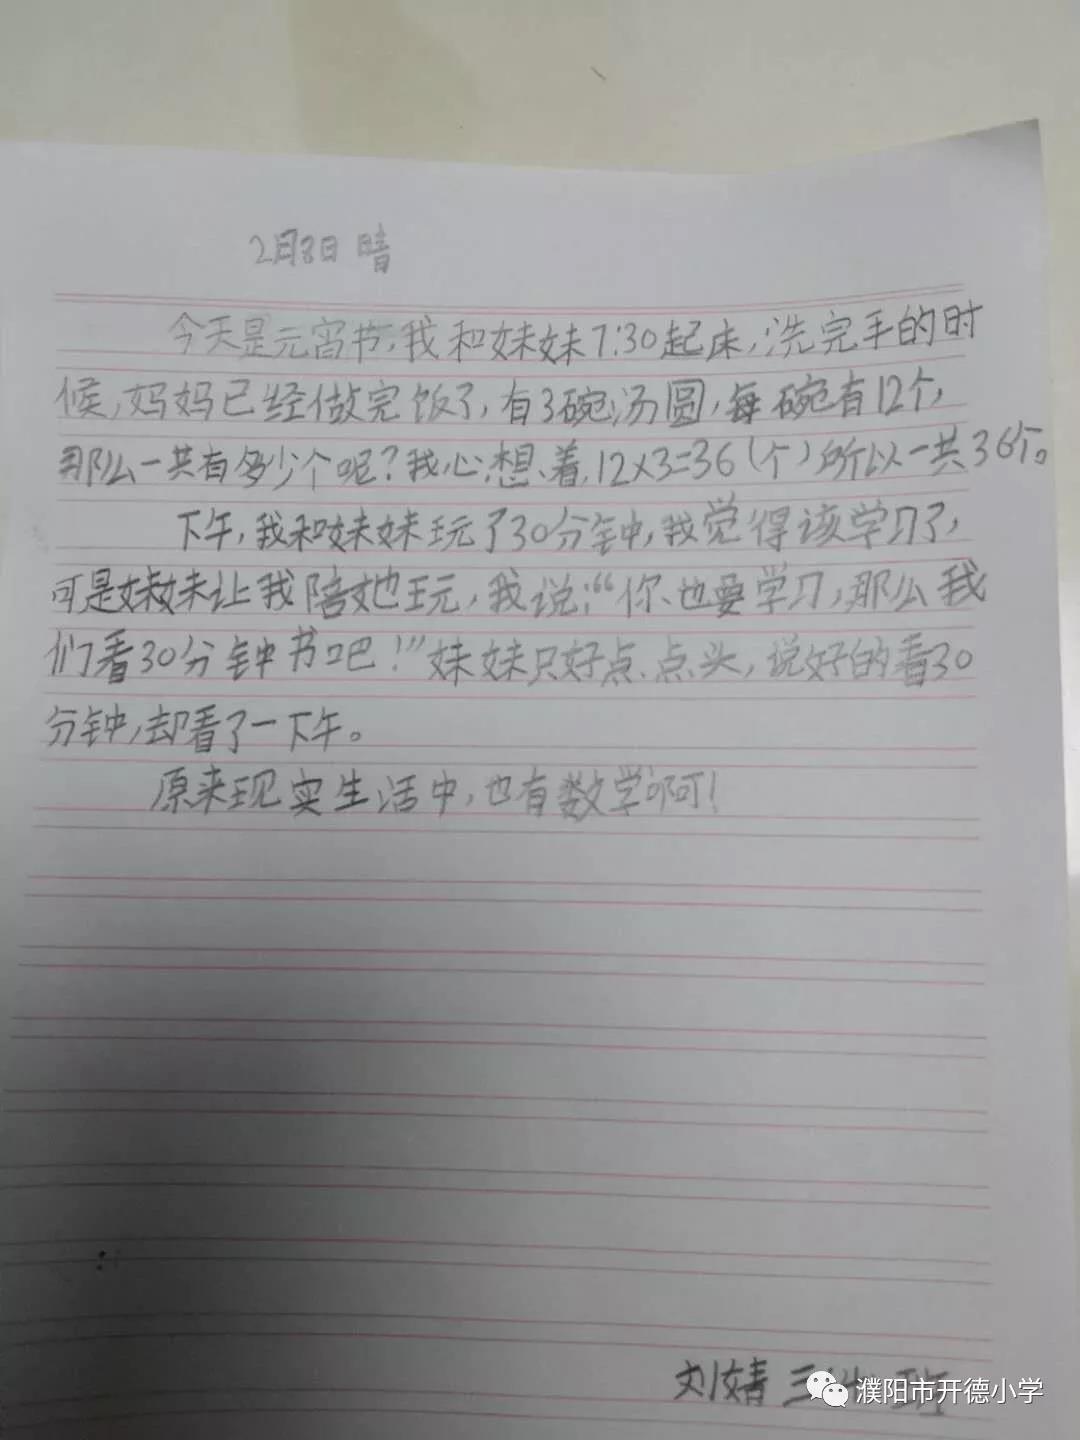 2月8日 晴
今天是元宵节,我和妹妹7:30起床,洗完手的时
候,妈妈已经做完饭了,有3碗汤圆,每碗有12个,
那么一共有多少个呢?我心想着,12×3=36(个)所以一共36个。
下午,我和妹妹玩了30分钟,我觉得该学习了,
可是妹妹让我陪她玩,我说:“你也要学习,那么我
们看30分钟书吧!”妹妹只好点点头,说好的看30
分钟,却看了一下午。
原来现实生活中,也有数学啊!
刘婧 三 班
濮阳市开德小学